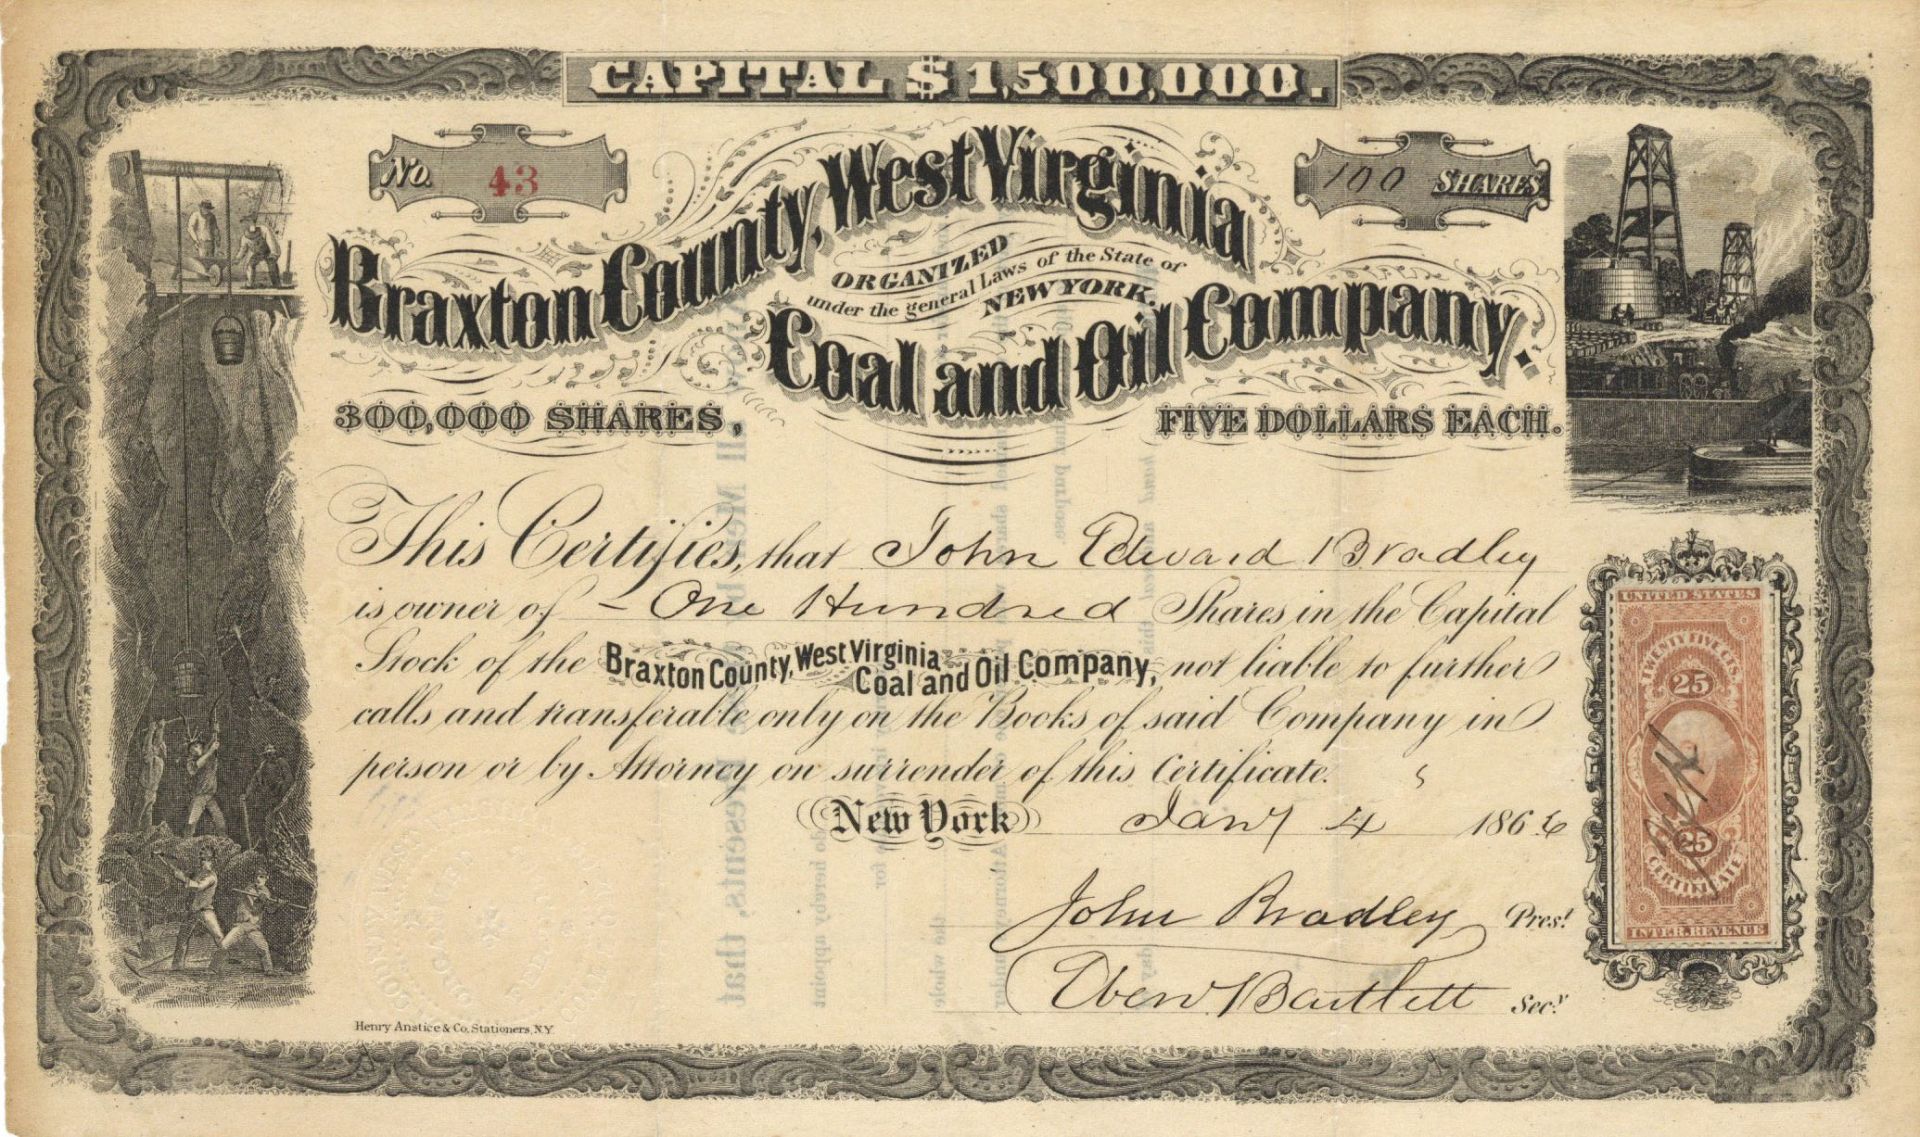 CAPITAL $1,500,000.
No. 43
100 SHARES
Braxton County, West Virginia
ORGANIZED
under the general Laws of the State of
NEW YORK.
Coal and Oil Company.
300,000 SHARES, FIVE DOLLARS EACH.
This Certifies, that John Edward Bradley
is owner of – One Hundred Shares in the Capital
Stock of the Braxton County, West Virginia Coal and Oil Company, not liable to further
calls and transferable only on the Books of said Company in
person or by Attorney on surrender of this Certificate.
New York Jany 4 1866
John Bradley Prest
Eben Bartlett Secy
Henry Anstice & Co. Stationers, N.Y.
UNITED STATES
TWENTY FIVE CTS.
25
25
CERTIFICATE
INTER. REVENUE